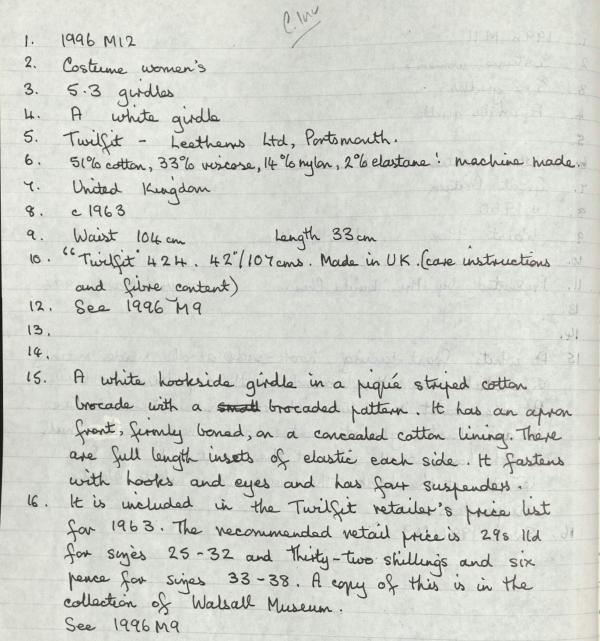 C. Inv
1. 1996 M12
2. Costume women's
3. 5.3 girdles
4. A white girdle
5. Twilfit - Leethems Ltd, Portsmouth.
6. 51% cotton, 33% viscose, 14% nylon, 2% elastane: machine made.
7. United Kingdom
8. c 1963
9. Waist 104 cm Length 33 cm
10. "Twilfit" 424. 42"/107cms. Made in UK. (care instructions
and fibre content)
12. See 1996 M9
13.
14.
15. A white hookside girdle in a piqué striped cotton
brocade with a small brocaded pattern. It has an apron
front, firmly boned, on a concealed cotton lining. There
are full length insets of elastic each side. It fastens
with hooks and eyes and has four suspenders.
16. It is included in the Twilfit retailer's price list
for 1963. The recommended retail price is 29s 11d
for sizes 25-32 and thirty-two shillings and six
pence for sizes 33-38. A copy of this is in the
collection of Walsall Museum.
See 1996 M9